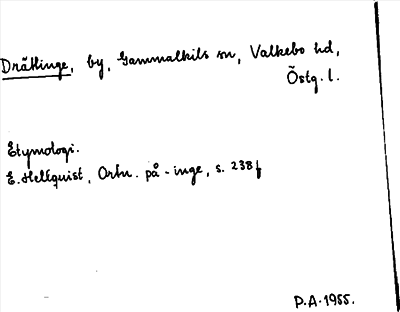 Drättinge, by, Gammalkils sn, Valkebo hd,
Östg. l.
Etymologi.
E. Hellquist, Ortn. på -inge, s. 238f
P.A. 1955.